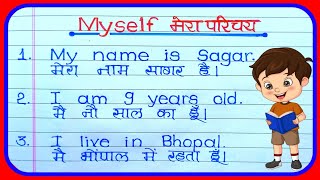 Myself मेरा परिचय
1. My name is Sagar.
मेरा नाम सागर है।
2. I am 9 years old.
मै नौ साल का हूँ।
3. I live in Bhopal.
मै भोपाल में रहता हूँ।